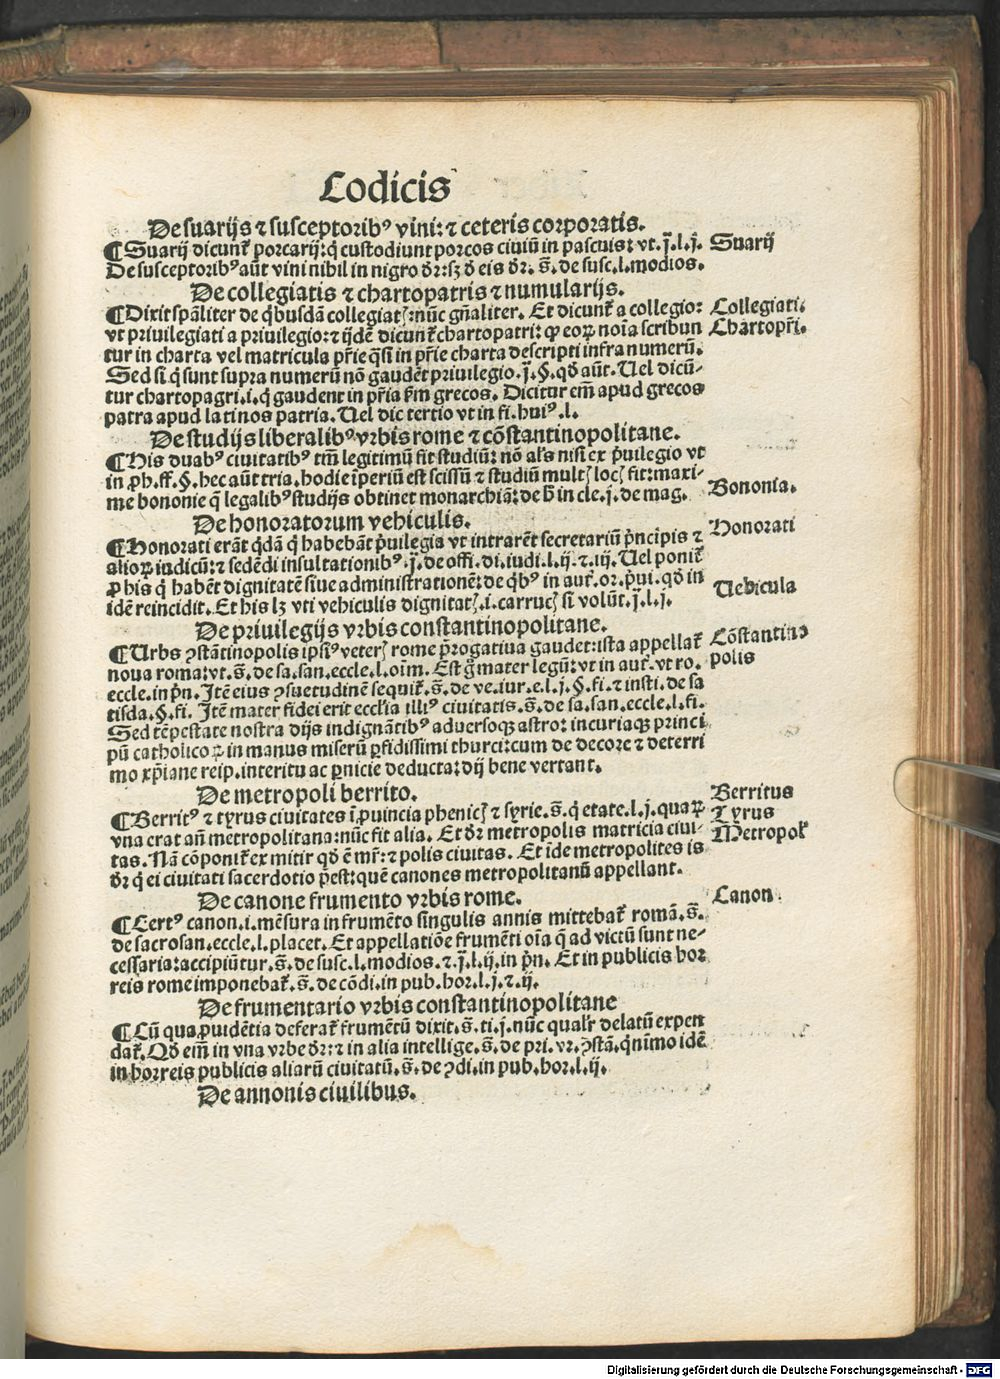 Codicis
De suarijs ⁊ susceptoribꝰ vini: ⁊ ceteris corporatis.
¶ Suarij dicunt᷑ porcarij: q̇ custodiunt porcos ciuiū in pascuis: vt.j̄.l.j. Suarij
De susceptoribꝰ aūt vini nihil in nigro dr̄: sꝫ d̄ eis dr̄. s̄. de susc.l.modios.
De collegiatis ⁊ chartopatris ⁊ numularijs.
¶ Dixit sp̄aliter de q̇busdā collegiatꝭ: nūc gn̄aliter. Et dicunt᷑ a collegio: Collegiati.
vt priuilegiati a priuilegio: ⁊ ijdē dicunt᷑ chartopatri: ꝙ eoꝝ noīa scribun Chartopr̄i.
tur in charta vel matricula pr̄ie q̄si in pr̄ie charta descripti infra numerū.
Sed si q̇ sunt supra numerū nō gaudēt priuilegio.j̄.§.qd̄ aūt. Uel dicū-
tur chartopagri.i.q̇ gaudent in pr̄ia ẜm grecos. Dicitur em̄ apud grecos
patra apud latinos patria. Uel dic tertio vt in fi.huiꝰ.l.
De studijs liberalibꝰ vrbis rome ⁊ cōstantinopolitane.
¶ His duabꝰ ciuitatibꝰ tm̄ legitimū fit studiū: nō al's nisi ex p̄uilegio vt
in ꝓh.ff.§.hec aūt tria. hodie īperiū est scissū ⁊ studiū multꝭ locꝭ fit: maxi-
me bononie q̄ legalibꝰ studijs obtinet monarchiā: de h̄ in cle.j.de mag. Bononia.
De honoratorum vehiculis.
¶ Honorati erāt q̇dā q̇ habebāt p̄uilegia vt intrarēt secretariū pn̄cipis ⁊ Honorati
alioꝝ iudicū: ⁊ sedēdi in sultationibꝰ.j̄.de offi.di.iudi.l.ij.⁊.iij. Uel ponit᷑
ꝓ his q̇ habēt dignitatē siue administrationē: de q̇bꝰ in aut᷑.or.p̄ui.qd̄ in
idē reincidit. Et his lꝫ vti vehiculis dignitatꝭ.i.carrucꝭ si volūt.j̄.l.j. Uehicula
De priuilegijs vrbis constantinopolitane.
¶ Urbs ꝯstātinopolis ipsiꝰ veterꝭ rome p̄rogatiua gaudet: ista appellat᷑ Cōstantino
noua roma: vt.s̄.de sa.san.eccle.l.oīm. Est g̊ mater legū: vt in aut᷑.vt ro. polis
eccle.in pn̄. Itē eius ꝯsuetudinē sequit᷑.s̄.de ve.iur.e.l.j.§.fi.⁊ insti.de sa
tisda.§.fi. Itē mater fidei erit eccl'ia illiꝰ ciuitatis.s̄.de sa.san.eccle.l.fi.
Sed tēpestate nostra dijs indignātibꝰ aduersoqꝫ astro: incuriaqꝫ princi
pū catholicoꝝ in manus miserū ꝑfidissimi thurci: cum de decore ⁊ deterri
mo xp̄iane reip.interitu ac ꝑnicie deducta: dij bene vertant.
De metropoli berrito.
¶ Berritꝰ ⁊ tyrus ciuitates ī ꝓuincia phenicꝭ ⁊ syrie.s̄.q̇ etate.l.j.quaꝝ Berritus
vna erat an̄ metropolitana: nūc fit alia. Et dr̄ metropolis matricia ciui- Tyrus
tas. Nā cōponit᷑ ex mitir qd̄ ē mr̄: ⁊ polis ciuitas. Et īde metropolites is Metropol'
dr̄ q̇ ei ciuitati sacerdotio p̄est: quē canones metropolitanū appellant.
De canone frumento vrbis rome. Canon.
¶ Certꝰ canon.i.mēsura in frumēto singulis annis mittebat᷑ romā.s̄.
de sacrosan.eccle.l.placet. Et appellatiōe frumēti oīa q̄ ad victū sunt ne-
cessaria: accipiūtur.s̄.de susc.l.modios.⁊.j̄.l.ij.in pn̄. Et in publicis hor
reis rome imponebat᷑.s̄.de cōdi.in pub.hor.l.j.⁊.ij.
De frumentario vrbis constantinopolitane
¶ Cū qua ꝓuidētia deferat᷑ frumētū dixit.s̄.ti.j.nūc qual'r delatū expen
dat᷑. Qd̄ em̄ in vna vrbe dr̄: ⁊ in alia intellige.s̄.de pri.vr.ꝯstā.q̇nīmo idē
in horreis publicis aliarū ciuitatū.s̄.de ꝯdi.in pub.hor.l.ij.
De annonis ciuilibus.
Digitalisierung gefördert durch die Deutsche Forschungsgemeinschaft - DFG